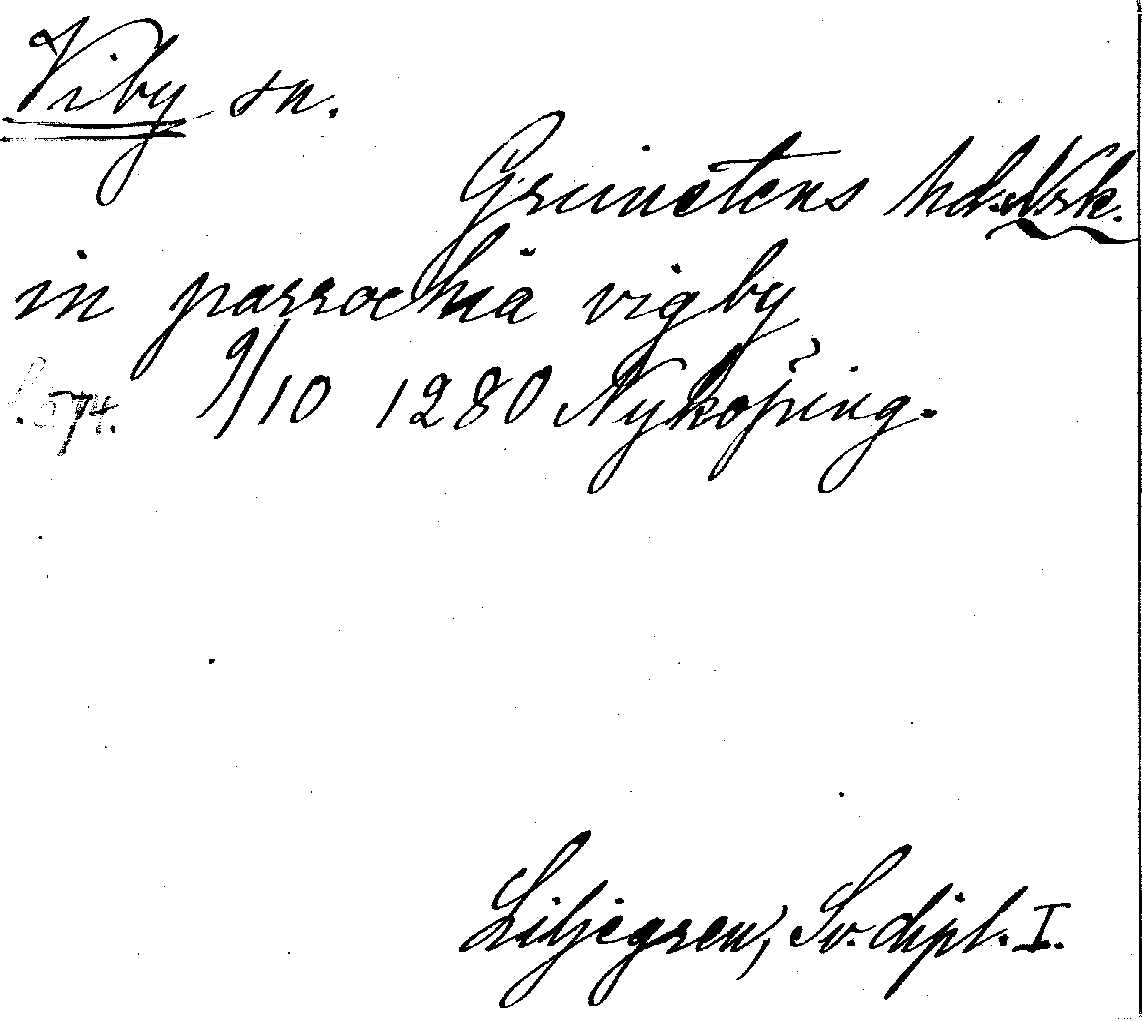 Viby sn.
Grimstens hd. Nrk.
in parrochia vigby
s. 574. 9/10 1280 Nyköping.
Liljegren, Sv. dipl. I.